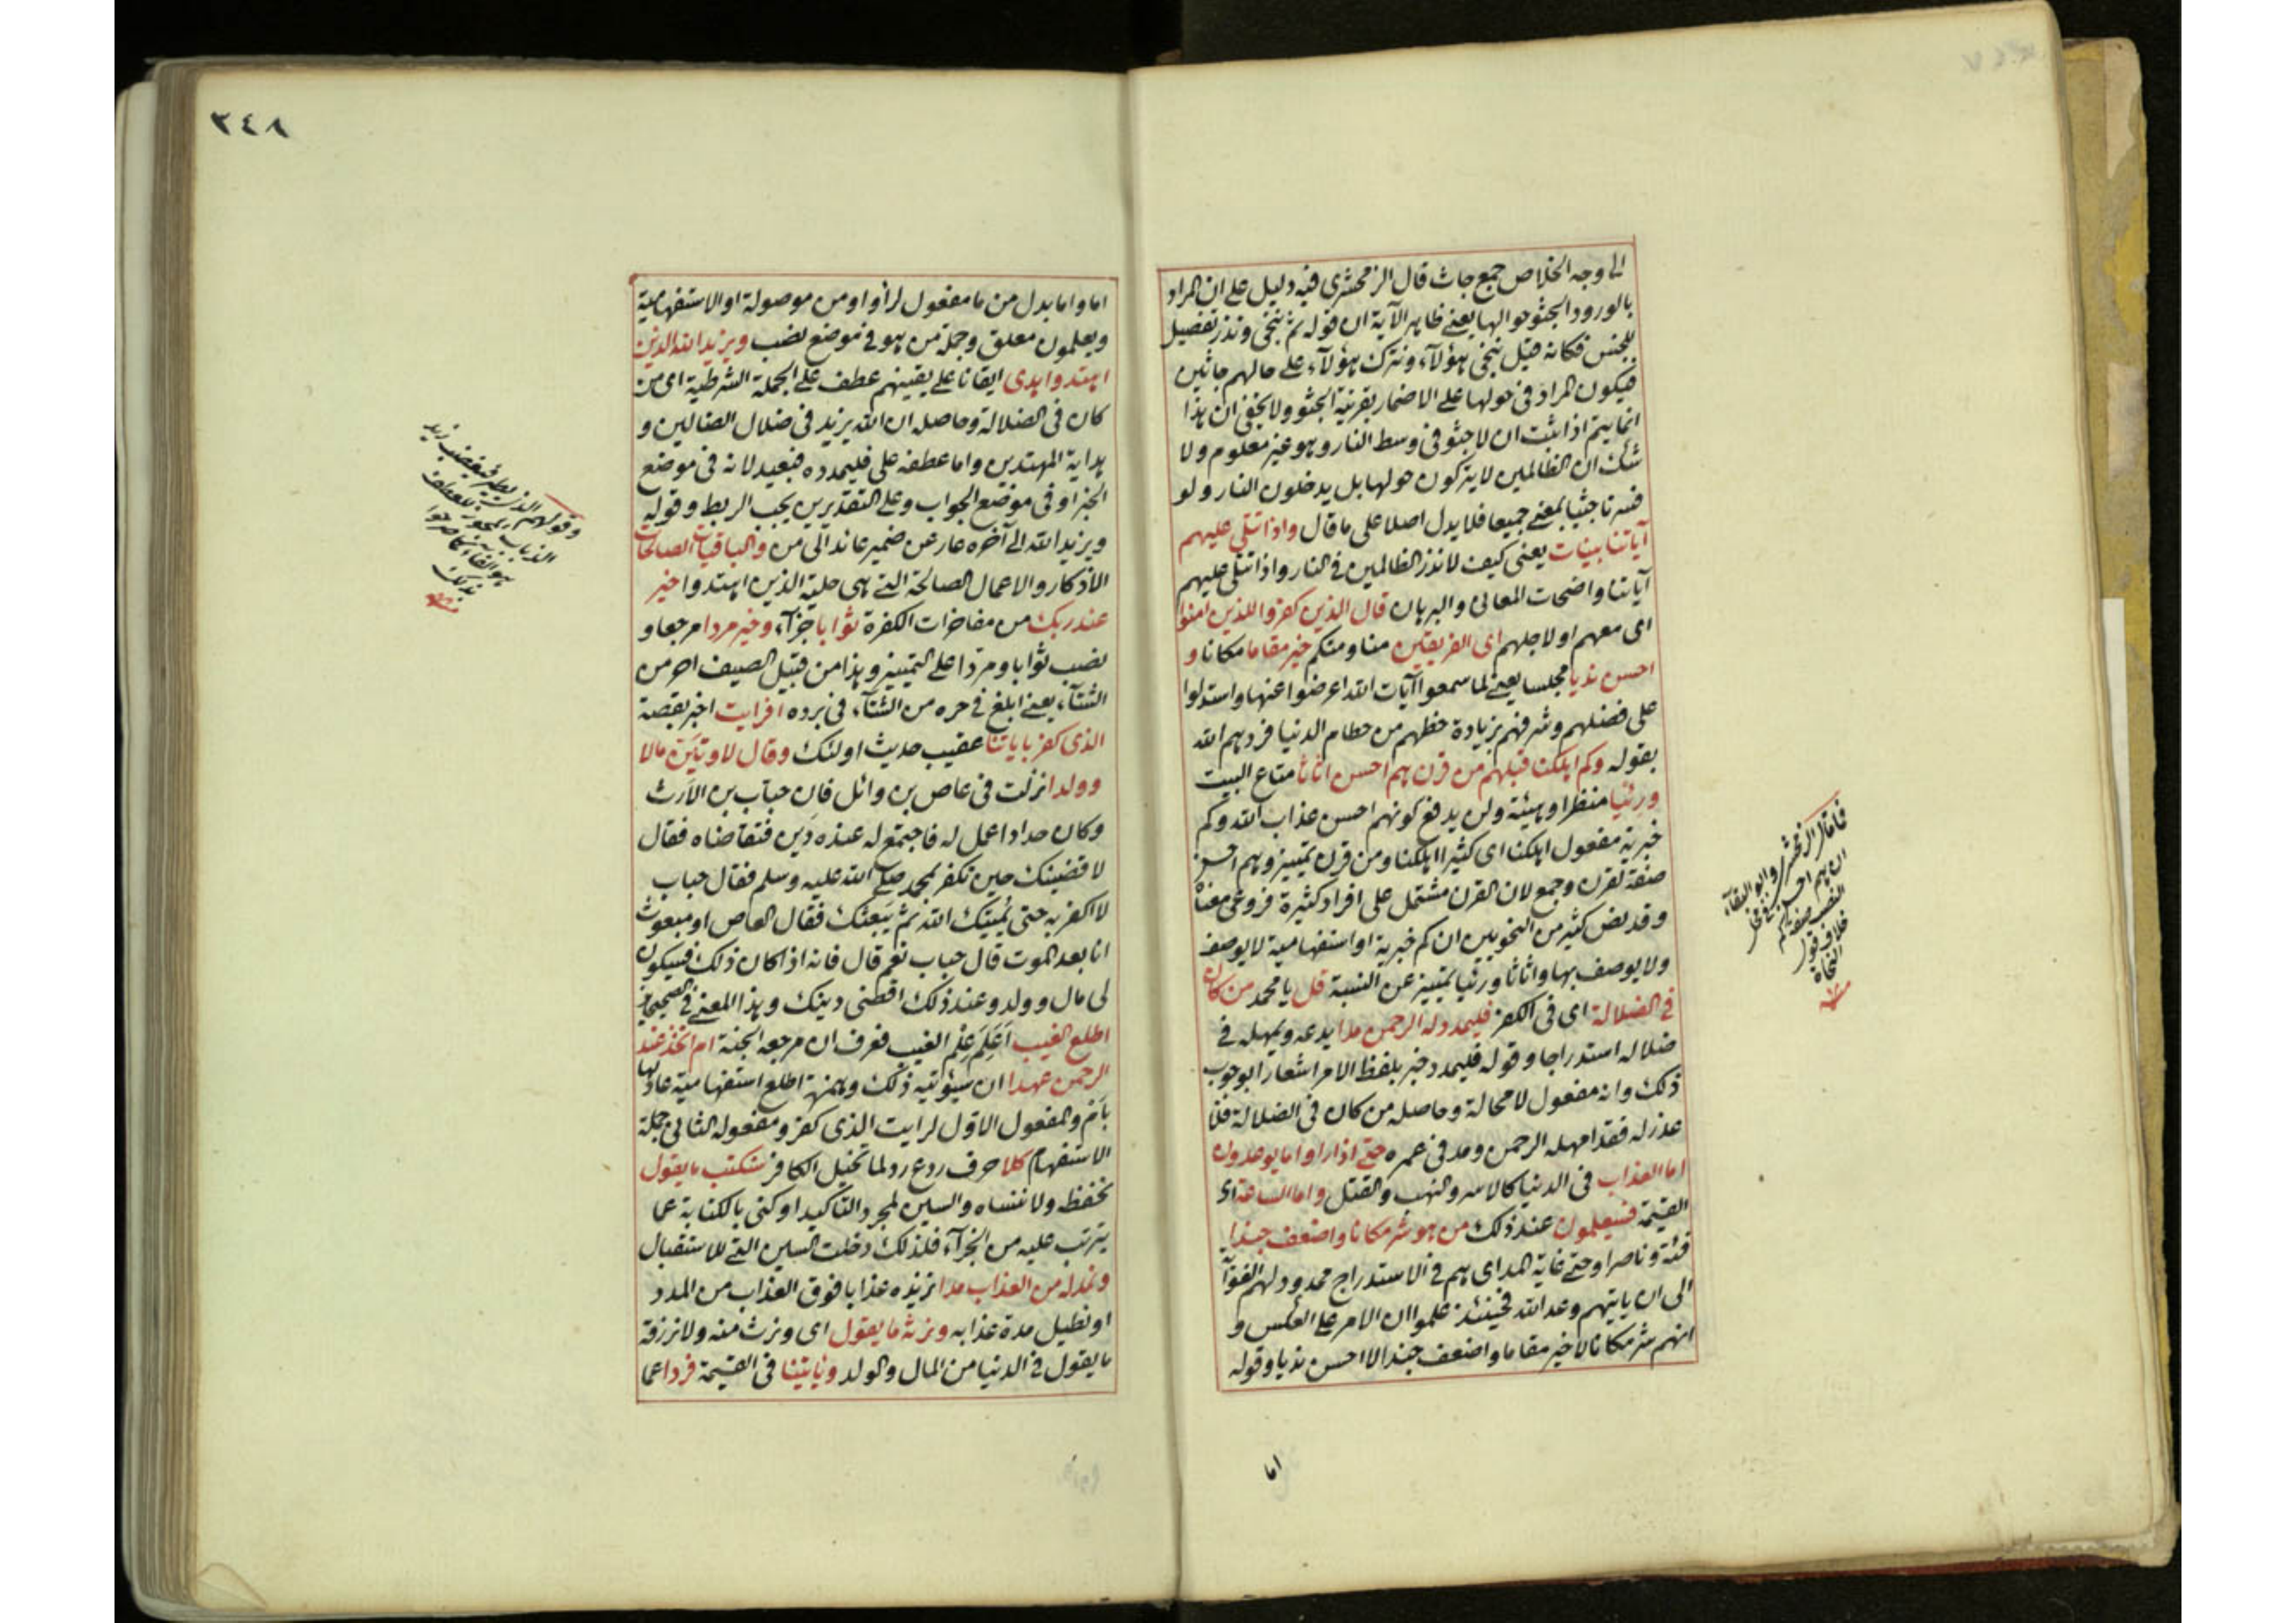 الى وجه الخلاص جمع جاث قال الزمخشرى فيه دليل على ان المراد
بالورود الجثو حواليها يعنى ظاهر الآية ان قوله ثم ننجى ونذر تفصيل
للجنس فكانه قيل ننجى هؤلآء ونترك هؤلآء على حالهم جاثين
فيكون المراد فى حولها على الاضمار بقرينة الجثو ولا يخفى ان هذا
انما يتم اذا ثبت ان لا جثو فى وسط النار وهو غير معلوم ولا
شك ان الظالمين لا يتركون حولها بل يدخلون النار ولو
فسرنا جثيا بمعنى جميعا فلا يدل اصلا على ما قال واذا تتلى عليهم
آياتنا بينات يعنى كيف لا نذر الظالمين فى النار واذا تتلى عليهم
آياتنا واضحات المعانى والبرهان قال الذين كفروا للذين امنوا
اى معهم او لاجلهم اى الفريقين منا ومنكم خير مقاما مكانا و
احسن نديا مجلسا يعنى لما سمعوا آيات الله اعرضوا عنها واستدلوا
على فضلهم وشرفهم بزيادة حظهم من حطام الدنيا فردهم الله
بقوله وكم اهلكنا قبلهم من قرن هم احسن اثاثا متاع البيت
ورئيا منظرا وهيئة ولن يدفع كونهم احسن عذاب الله وكم
خبرية مفعول اهلكنا اى كثيرا اهلكنا ومن قرن تمييز وهم احسن
صفة لقرن وجمع لان القرن مشتمل على افراد كثيرة فروعى معناه
وقد نص كثير من النحويين ان كم خبرية او استفهامية لا يوصف
ولا يوصف بها واثاثا ورئيا تمييز عن النسبة قل يا محمد من كان
فى الضلالة اى فى الكفر فليمدد له الرحمن مدا يدعه ويمهله فى
ضلاله استدراجا وقوله فليمدد خبر بلفظ الامر اشعارا بوجوب
ذلك وانه مفعول لا محالة وحاصله من كان فى الضلالة فلا
عذر له فقد امهله الرحمن ومد فى عمره حتى اذا راوا ما يوعدون
اما العذاب فى الدنيا كالاسر والنهب والقتل واما الساعة اى
القيمة فسيعلمون عند ذلك من هو شر مكانا واضعف جندا
فئة وناصرا وحتى غاية المد اى هم فى الاستدراج ممدود لهم
الى ان ياتيهم وعد الله فحينئذ علموا ان الامر على العكس و
انهم شر مكانا لا خير مقاما واضعف جندا لا احسن نديا وقوله
اما
فما قال الزمخشرى وابو البقآء
ان هم احسن فى محل
النصب صفة لكم
خلاف قول
النحاة
منه
٢٤٨
اما واما بدل من ما مفعول راوا ومن موصولة او الاستفهامية
ويعلمون معلق وجملة من هو فى موضع نصب ويزيد الله الذين
اهتدوا هدى ايقانا على يقينهم عطف على الجملة الشرطية اى من
كان فى الضلالة وحاصله ان الله يزيد فى ضلال الضالين و
هداية المهتدين واما عطفه على فليمدده فبعيد لانه فى موضع
الخبر او فى موضع الجواب وعلى التقديرين يجب الربط وقوله
ويزيد الله الى آخره عار عن ضمير عائد الى من والباقيات الصالحات
الاذكار والاعمال الصالحة التى هى حلية الذين اهتدوا خير
عند ربك من مفاخرات الكفرة ثوابا جزآء وخير مردا مرجعا و
نصب ثوابا ومردا على التمييز وهذا من قبيل الصيف احر من
الشتآء يعنى ابلغ فى حره من الشتآء فى برده افرايت اخبر بقصة
الذى كفر باياتنا عقيب حديث اولئك وقال لاوتين مالا
وولدا نزلت فى عاص بن وائل فان خباب بن الارث
وكان حدادا عمل له فاجتمع له عنده دين فتقاضاه فقال
لا قضينك حين تكفر بمحمد صلى الله عليه وسلم فقال خباب
لا اكفر به حتى يميتك الله ثم يبعثك فقال العاص او مبعوث
انا بعد الموت قال خباب نعم قال فانه اذا كان ذلك فسيكون
لى مال وولد وعند ذلك اقضنى دينك وهذا المعنى فى الصحيحين
اطلع الغيب اَعَلِمَ عِلْم الغيب فعرف ان مرجعه الجنة ام اتخذ عند
الرحمن عهدا ان سيؤتيه ذلك وهمزة اطلع استفهامية عادلها
بام والمفعول الاول لرايت الذى كفر ومفعوله الثانى جملة
الاستفهام كلا حرف ردع رد لما تخيل الكافر سنكتب ما يقول
نحفظ ولا ننساه والسين لمجرد التاكيد او كنى بالكتابة عما
يترتب عليه من الجزآء فلذلك دخلت السين التى للاستقبال
ونمد له من العذاب مدا نزيده عذابا فوق العذاب من المدد
او نطيل مدة عذابه ونرثه ما يقول اى ونرث منه ولا نرزقه
ما يقول فى الدنيا من المال والولد وياتينا فى القيمة فردا عما
وقولهم الذى يطير فيغضب زيد
الذباب يجوز للعطف
بالفآء كما صرحوا
بذلك
منه